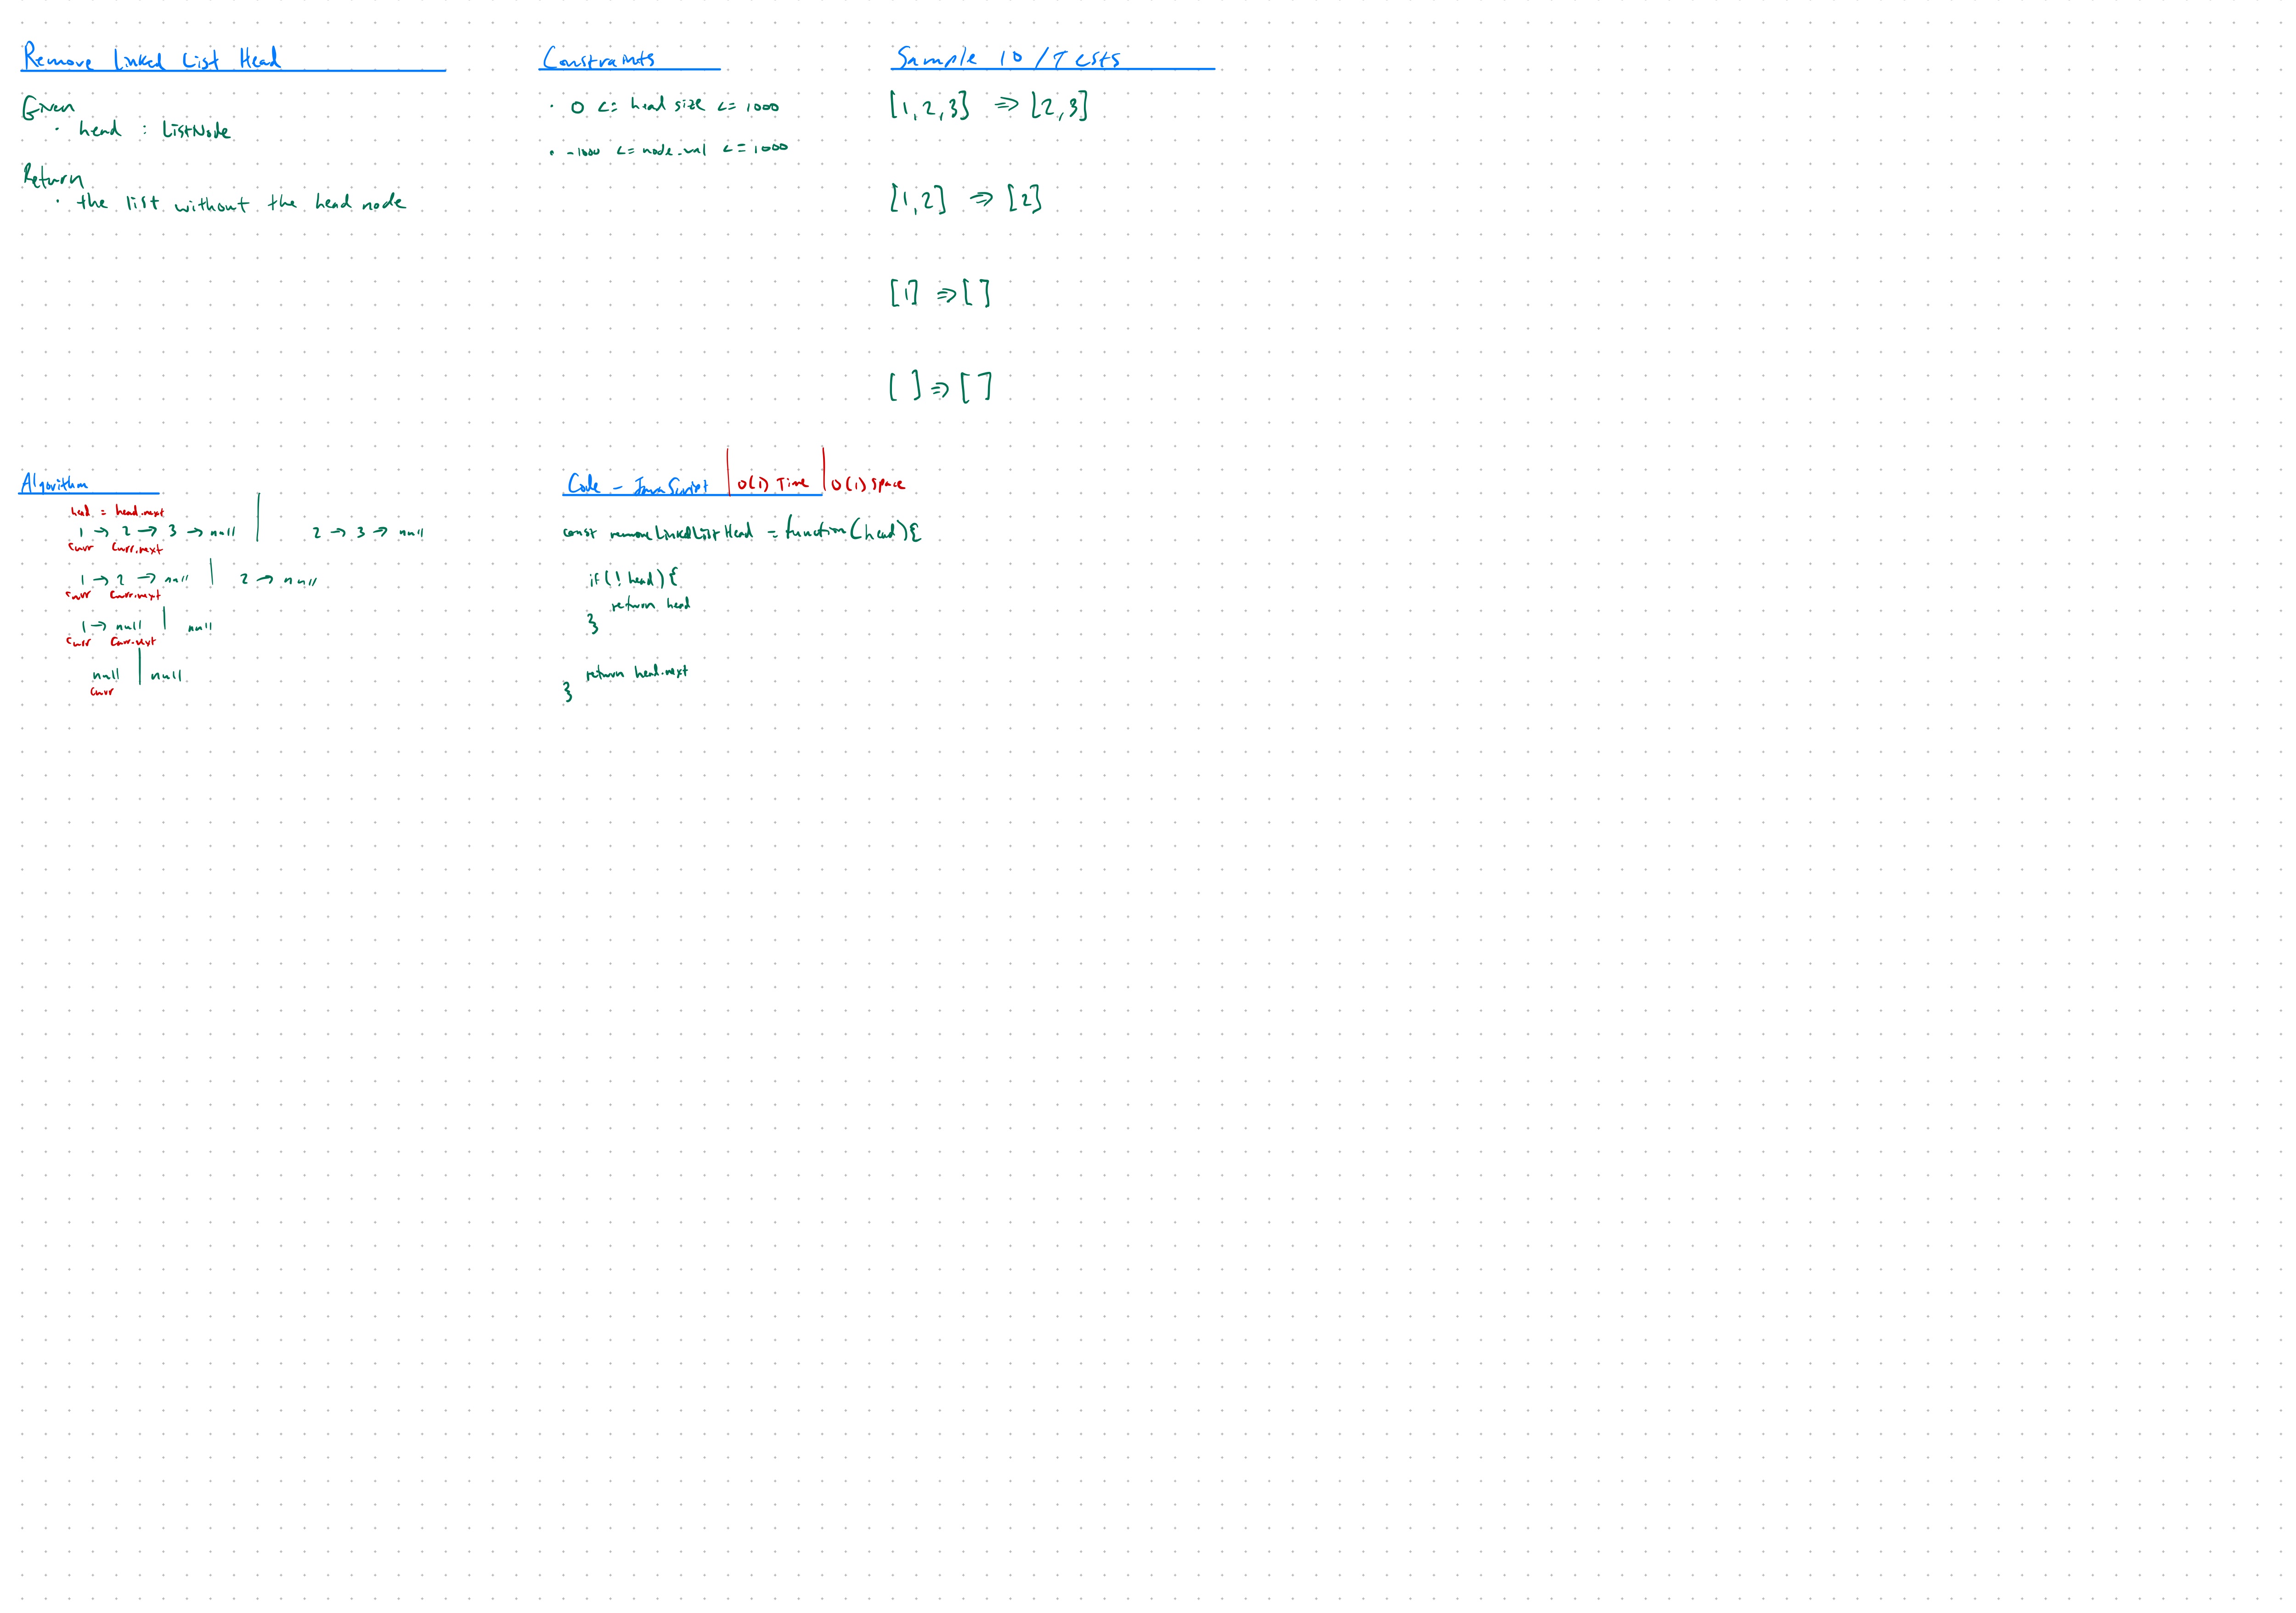 Remove Linked List Head
Given
· head : ListNode
Return
· the list without the head node
Constraints
· 0 <= head size <= 1000
· -1000 <= node.val <= 1000
Sample IO / Tests
[1,2,3] => [2,3]
[1,2] => [2]
[1] => []
[ ] => [ ]
Algorithm
head = head.next
1 -> 2 -> 3 -> null | 2 -> 3 -> null
curr curr.next
1 -> 2 -> null | 2 -> null
curr curr.next
1 -> null | null
curr curr.next
null | null
curr
Code - JavaScript | O(1) Time | O(1) Space
const removeLinkedListHead = function(head){
if(!head){
return head
}
return head.next
}